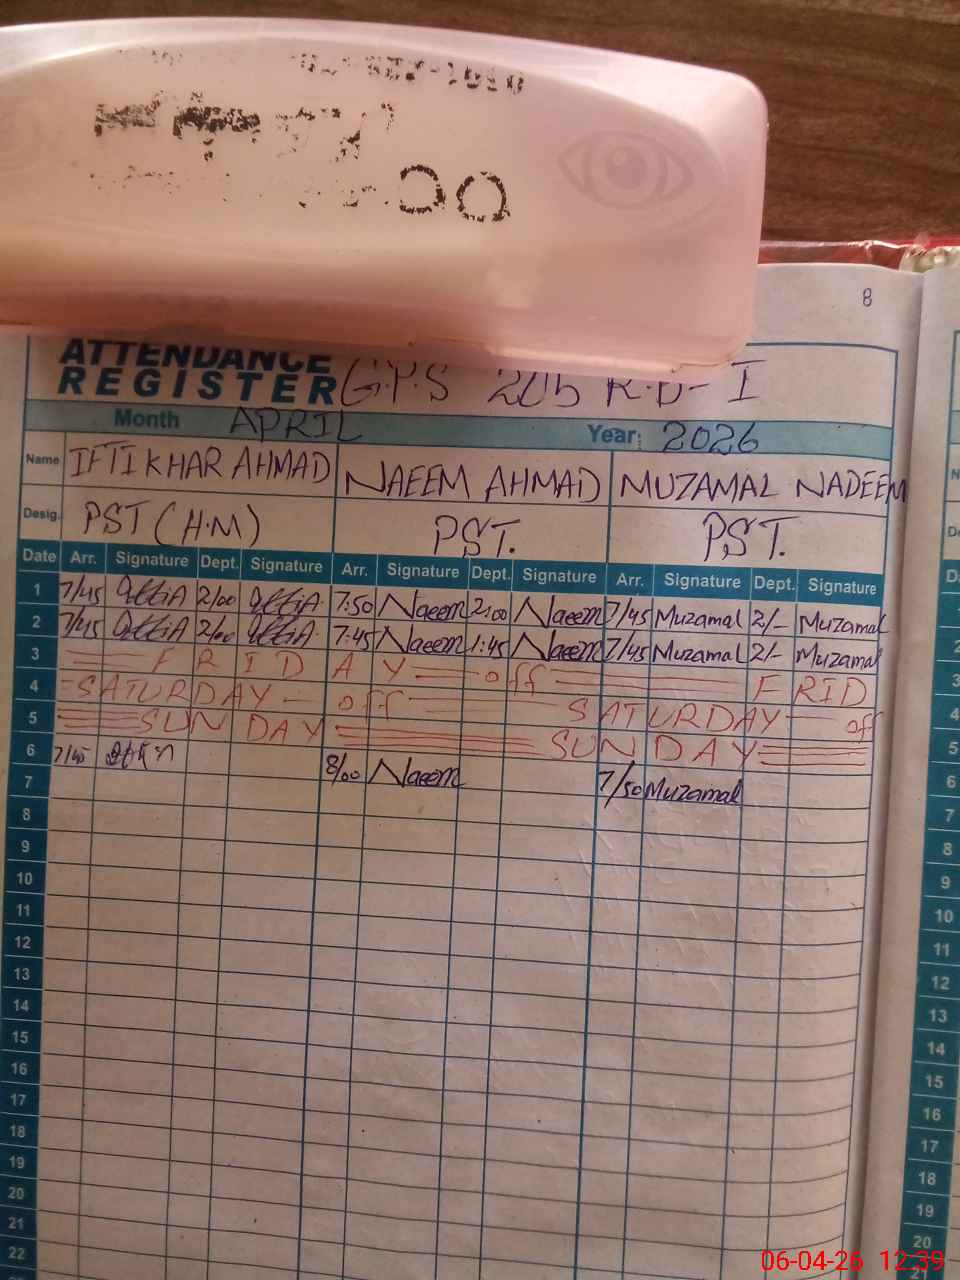 00
8
ATTENDANCE
REGISTER G.P.S 205 R.B-I
Month APRIL Year: 2026
Name IFTIKHAR AHMAD NAEEM AHMAD MUZAMAL NADEEM
Desig. PST (H.M) P.S.T. P.S.T.
Date Arr. Signature Dept. Signature Arr. Signature Dept. Signature Arr. Signature Dept. Signature
1 7/45 2/00 7:50 Naeem 2:00 Naeem 7/45 Muzamal 2/- Muzamal
2 7/45 2/00 7:45 Naeem 1:45 Naeem 7/45 Muzamal 2/- Muzamal
3 FRIDAY off FRID
4 SATURDAY off SATURDAY off
5 SUNDAY SUNDAY
6 7/45 8/00 Naeem 7/50 Muzamal
7
8
9
10
11
12
13
14
15
16
17
18
19
20
21
22
2
3
4
5
6
7
8
9
10
11
12
13
14
15
16
17
18
19
20
06-04-26 12:39